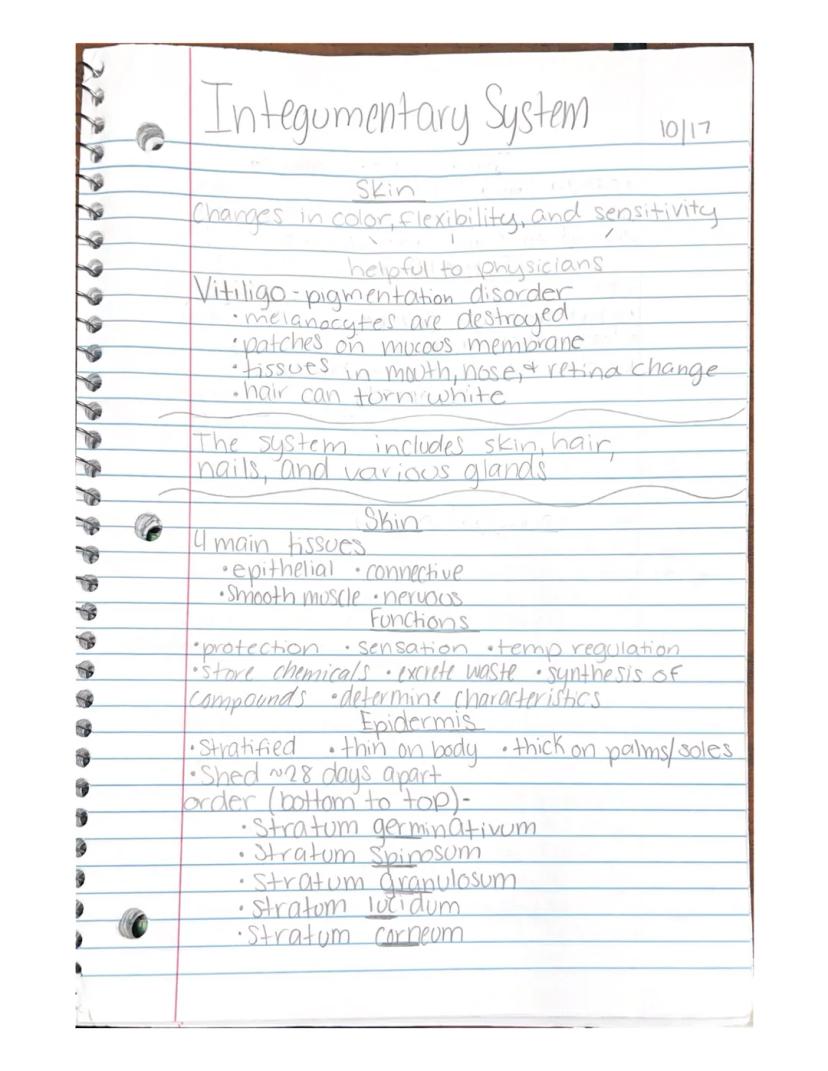 Integumentary System 10/17
Skin
Changes in color, flexibility, and sensitivity
helpful to physicians
Vitiligo - pigmentation disorder
• melanocytes are destroyed
• patches on mucous membrane
• tissues in mouth, nose, & retina change
• hair can turn white
The system includes skin, hair,
nails, and various glands
Skin
4 main tissues
• epithelial • connective
• Smooth muscle • nervous
Functions
• protection • sensation • temp regulation
• store chemicals • excrete waste • synthesis of
compounds • determine characteristics
Epidermis
• Stratified • thin on body • thick on palms/soles
• Shed ~28 days apart
order (bottom to top)-
• Stratum germinativum
• Stratum spinosum
• Stratum granulosum
• Stratum lucidum
• Stratum corneum